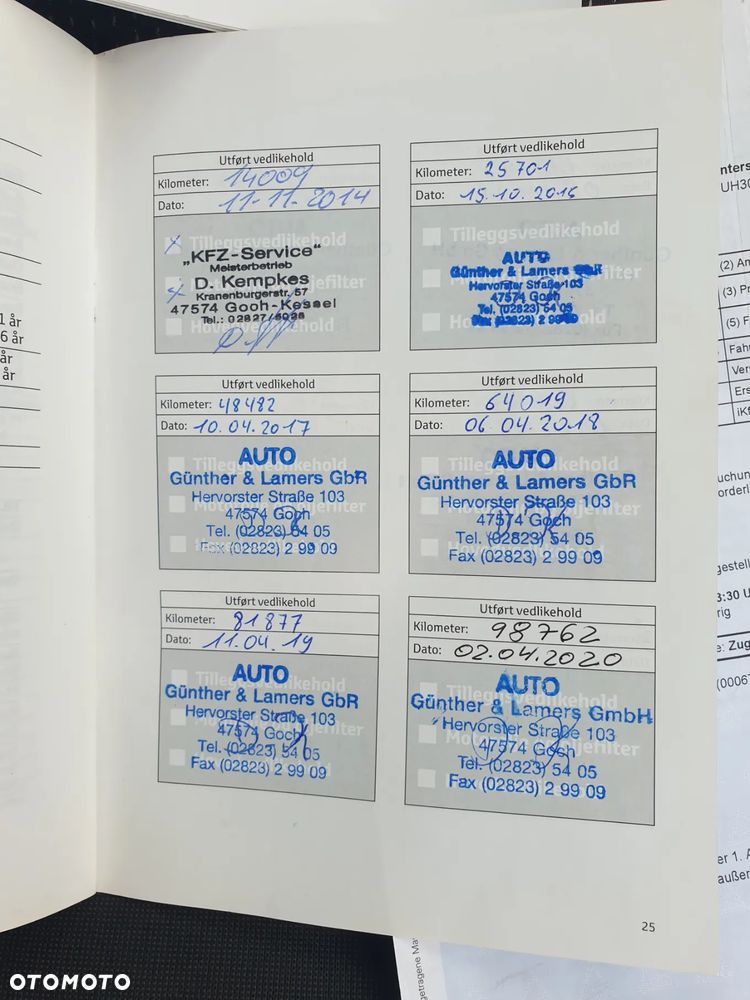 1 år
6 år
år
år
Utført vedlikehold
Kilometer: 14009
Dato: 11-11-2014
Tilleggsvedlikehold
„KFZ-Service"
Meisterbetrieb
D. Kempkes
Kranenburgerstr. 57
47574 Gooh-Kessel
Utført vedlikehold
Kilometer: 25701
Dato: 15.10.2016
Tilleggsvedlikehold
AUTO
Günther & Lamers GbR
Hervorster Straße 103
47574 Goch
Tel. (02823) 54 05
Fax (02823) 2 99 09
Utført vedlikehold
Kilometer: 48482
Dato: 10.04.2017
Tilleggsvedlikehold
AUTO
Günther & Lamers GbR
Hervorster Straße 103
47574 Goch
Tel. (02823) 54 05
Fax (02823) 2 99 09
Utført vedlikehold
Kilometer: 64019
Dato: 06.04.2018
Tilleggsvedlikehold
AUTO
Günther & Lamers GbR
Hervorster Straße 103
47574 Goch
Tel. (02823) 54 05
Fax (02823) 2 99 09
Utført vedlikehold
Kilometer: 81877
Dato: 11.04.19
Tilleggsvedlikehold
AUTO
Günther & Lamers GbR
Hervorster Straße 103
47574 Goch
Tel. (02823) 54 05
Fax (02823) 2 99 09
Utført vedlikehold
Kilometer: 98762
Dato: 02.04.2020
AUTO
Günther & Lamers GmbH
Hervorster Straße 103
47574 Goch
Tel. (02823) 54 05
Fax (02823) 2 99 09
25
UH30
(2) An
(3) Pr
(5) F
Fahr
Ver
Ers
iKf
gestell
3:30 U
rig
e: Zug
(0006
er 1. A
außer
getragene Ma
OTOMOTO